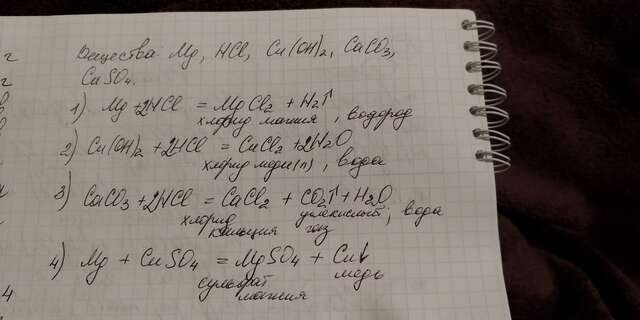 Вещества Mg, HCl, Cu(OH)₂, CaCO₃,
CuSO₄.
1) Mg + 2HCl = MgCl₂ + H₂↑
хлорид магния, водород
2) Cu(OH)₂ + 2HCl = CuCl₂ + 2H₂O
хлорид меди(II), вода
3) CaCO₃ + 2HCl = CaCl₂ + CO₂↑ + H₂O
хлорид углекислый, вода
кальция газ
4) Mg + CuSO₄ = MgSO₄ + Cu↓
сульфат медь
магния